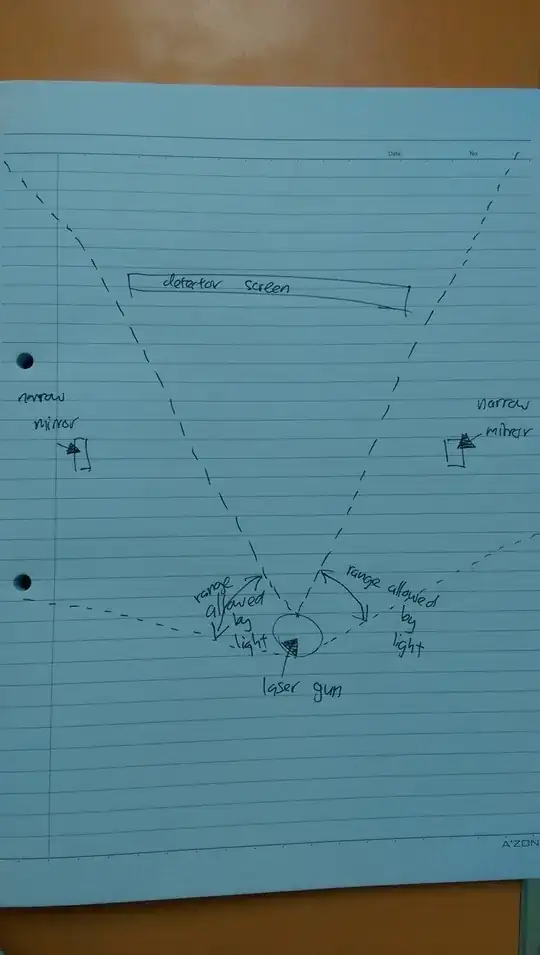 Date
No.
detector screen
narrow
mirror
narrow
mirror
range
allowed
by
light
range allowed
by
light
laser gun
A'ZON